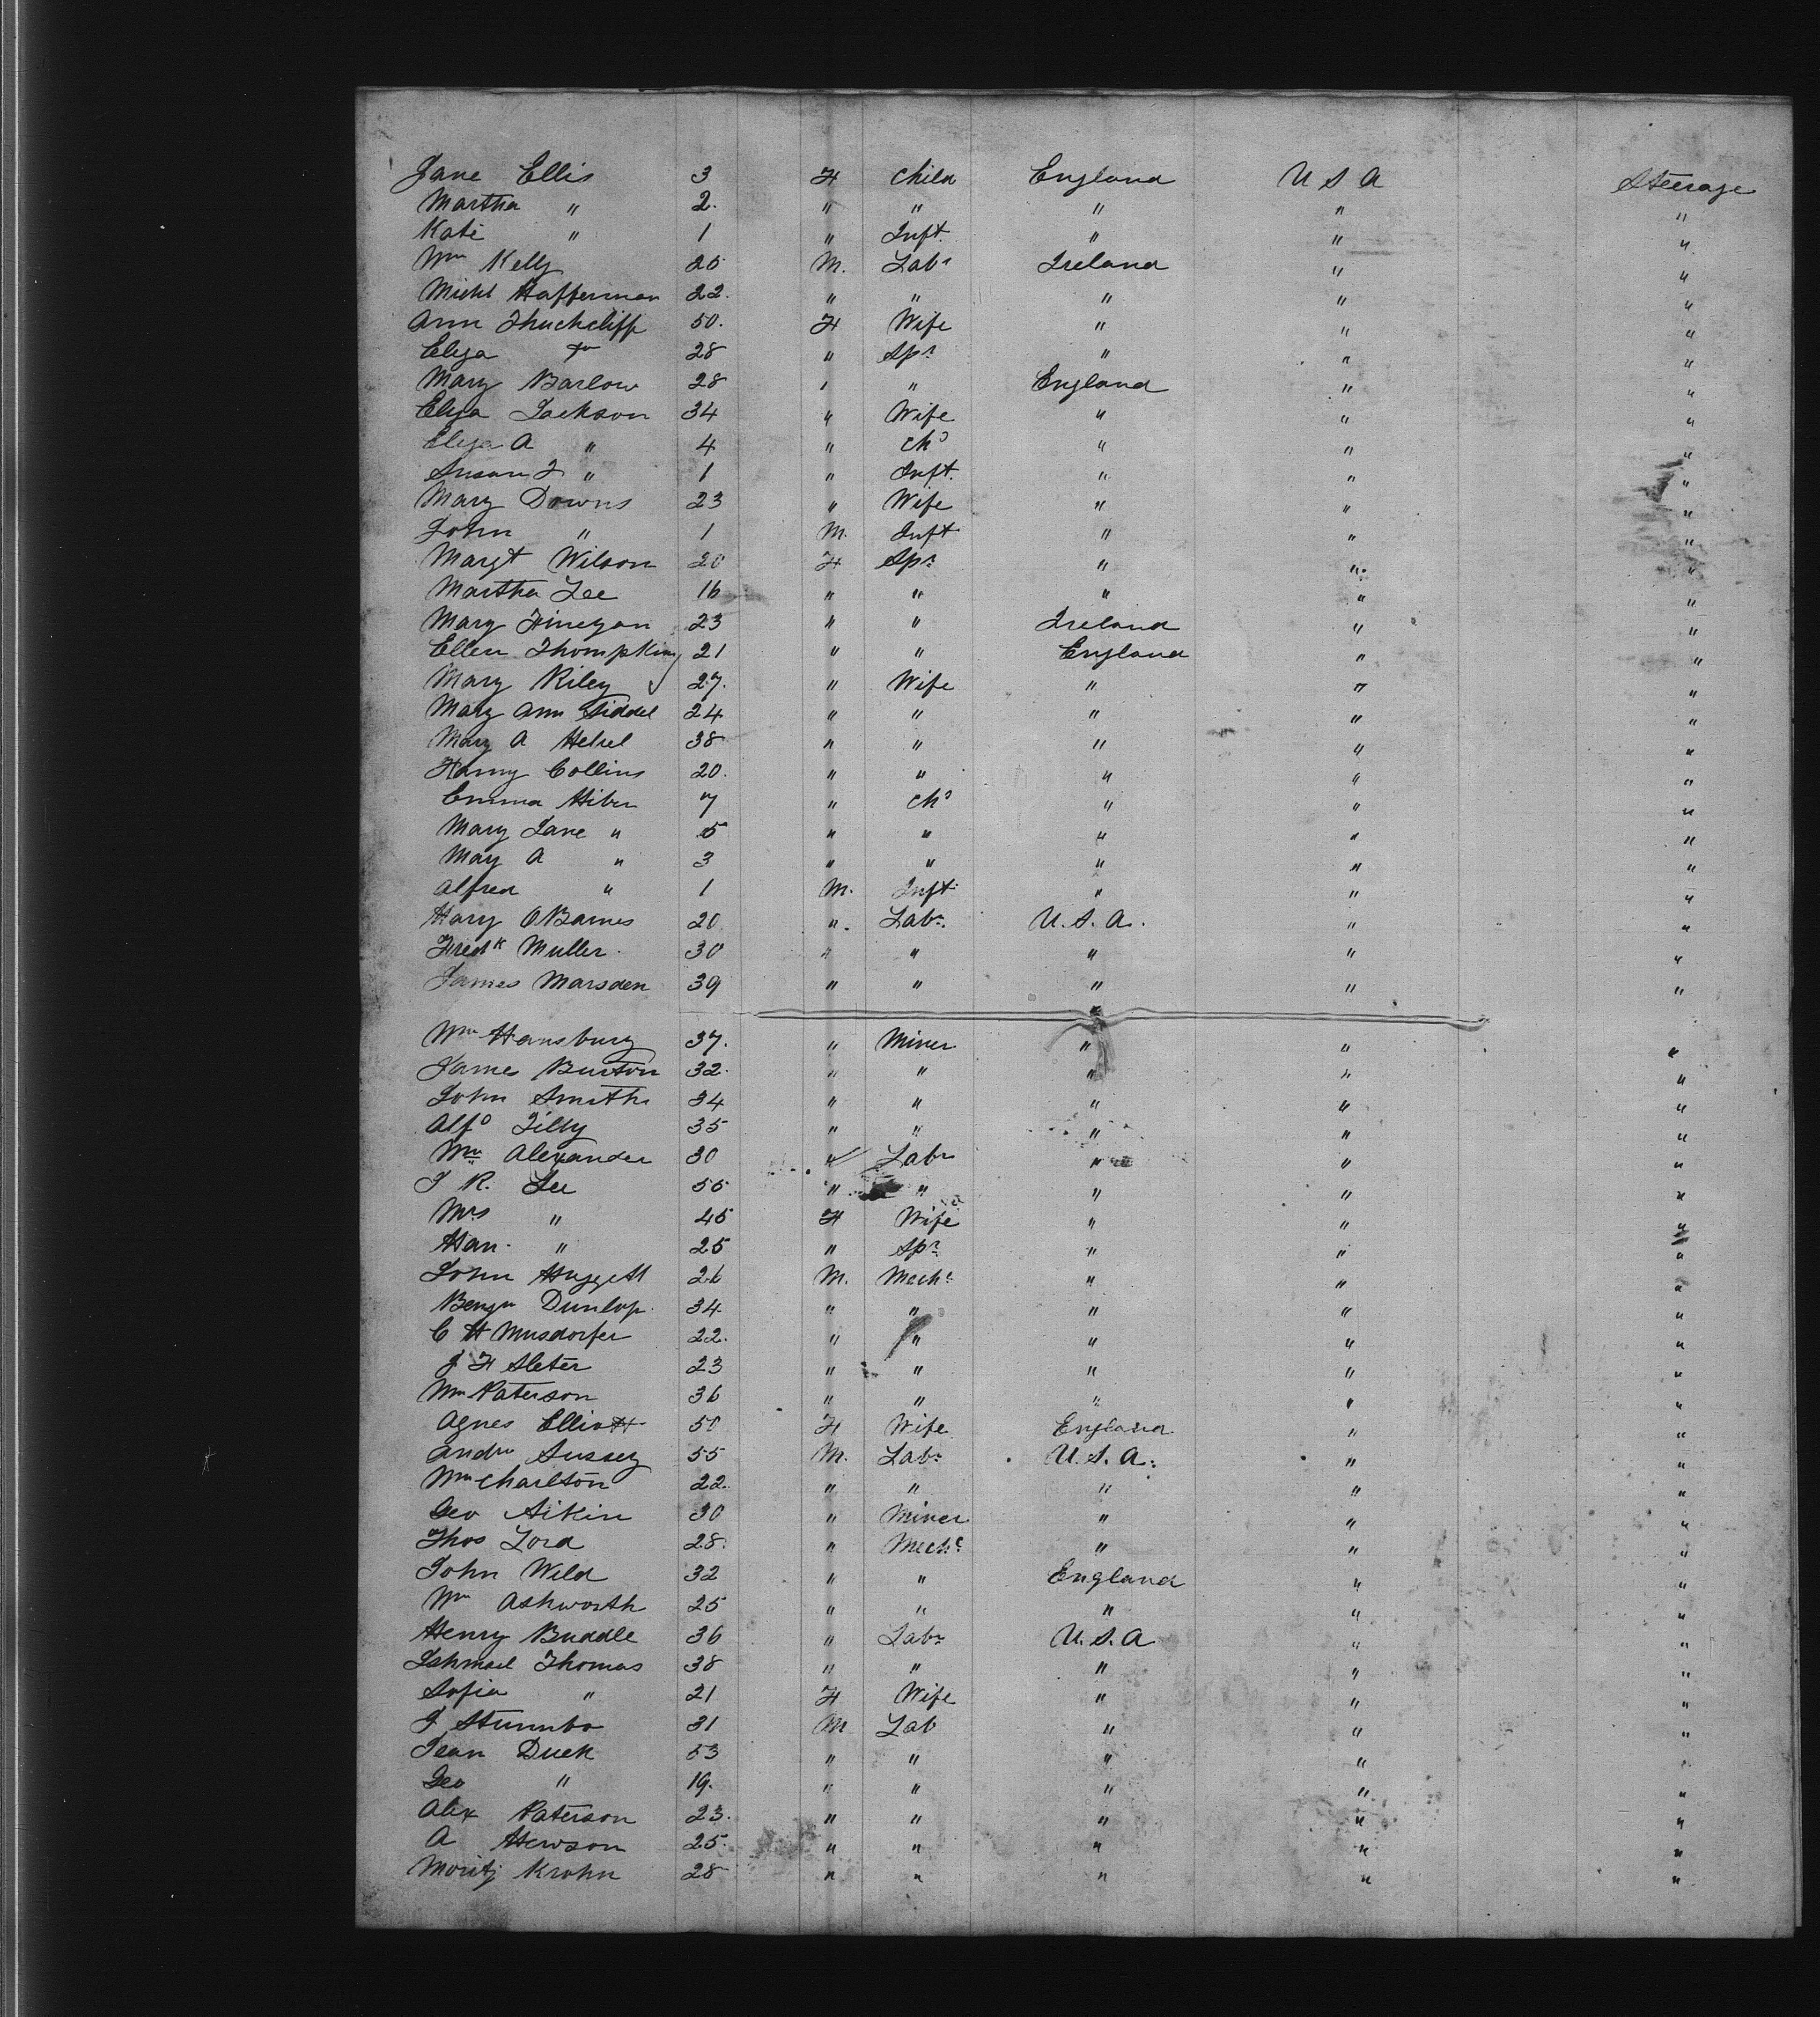 Jane Ellis 3 F Child England U S A Steerage
Martha " 2. " " " " "
Kate " 1 " Inft. " " "
Wm Kelly 25 M. Labr Ireland " "
Michl Hafferman 22. " " " " "
Ann Thuchcliff 50. F Wife " " "
Eliza Do 28 " Spr " " "
Mary Barlow 28 " " England " "
Eliza Jackson 34 " Wife " " "
Eliza A " 4 " Chd " " "
Susan J " 1 " Inft. " " "
Mary Downs 23 " Wife " " "
John " 1 M. Inft " " "
Margt Wilson 20 F Spr " " "
Martha Lee 16 " " " " "
Mary Finegan 23 " " Ireland " "
Ellen Thompkins 21 " " England " "
Mary Riley 27. " Wife " " "
Mary Ann Siddel 24 " " " " "
Mary A 38 " " " " "
Fanny Collins 20. " " " " "
Emma Hiber 7 " Chd " " "
Mary Jane " 5 " " " " "
May A " 3 " " " " "
Alfred " 1 M. Inft " " "
Harry OBarnes 20 ". Labr. U. S. A. " "
Fredk Muller. 30 " " " " "
James Marsden 39 " " " " "
Wm Hansbury 37. " Miner " " "
James Burton 32. " " " " "
John Smith 34 " " " " "
Alfd Tilly 35 " " " " "
Wm Alexander 30 " Labr " " "
J R. Lee 55 " " " " "
Mrs " 45 F Wife " " "
Han. " 25 " Spr " " "
John Huggett 26 M. Mechc " " "
Benjn Dunlop. 34 " " " " "
C H Musdorfer 22. " " " " "
J F Sleter 23 " " " " "
Wm Paterson 36 " " " " "
Agnes Elliott 50 F Wife England " "
Andw Sussey 55 M. Labr U. S. A. " "
Wm Charlton 22. " " " " "
Geo Aikin 30 " Miner " " "
Thos Lord 28. " Mechc " " "
John Wild 32 " " England " "
Wm Ashworth 25 " " " " "
Henry Buddle 36 " Labr U. S. A " "
Ishmael Thomas 38 " " " " "
Sofia " 21 F Wife " " "
J Stumbo 31 M Lab " " "
Jean Duck 53 " " " " "
Geo " 19. " " " " "
Alex Paterson 23. " " " " "
A Hewson 25. " " " " "
Moritz Krohn 28 " " " " "